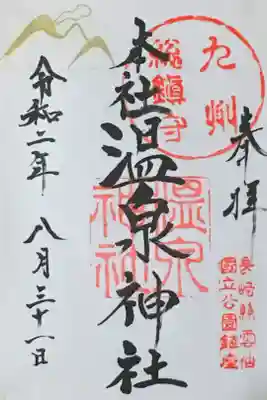 九州
総鎮守
奉拝
長崎縣雲仙
國立公園鎮座
本社温泉神社
温泉
神社
令和二年 八月三十一日